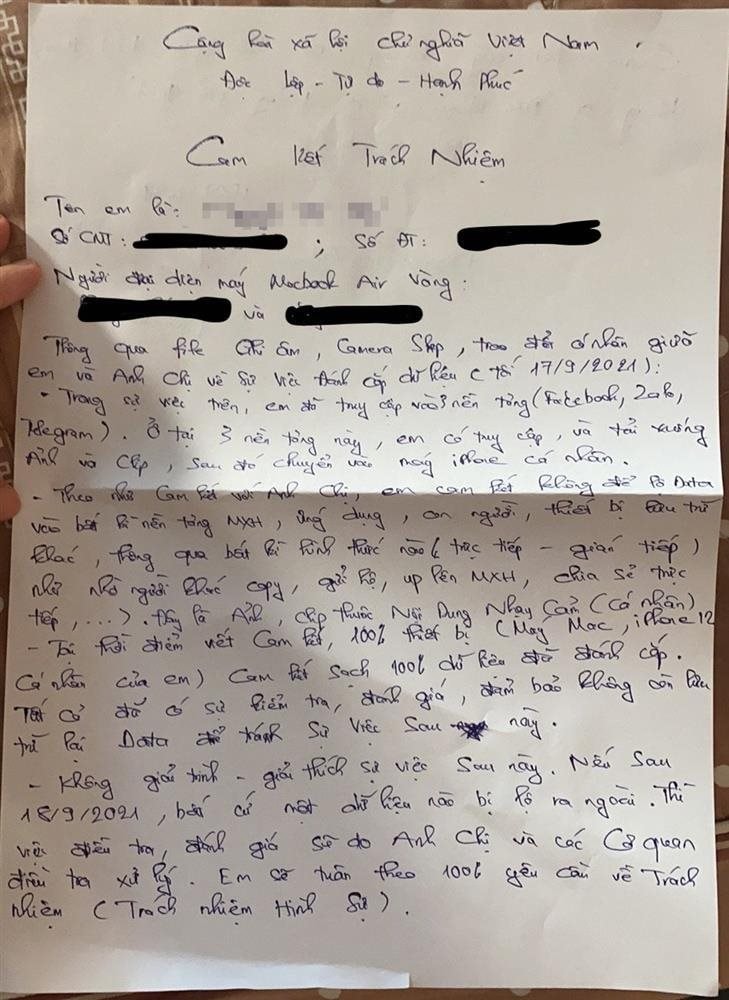 Cộng hoà xã hội chủ nghĩa Việt Nam.
Độc lập - Tự do - Hạnh Phúc
Cam kết Trách Nhiệm
Tên em là:
Số CMT: ; Số ĐT:
Người đại diện máy Macbook Air Vàng:
và
Thông qua file Ghi âm, Camera Shop, trao đổi cá nhân giữa
em và Anh Chị về Sự việc đánh cắp dữ liệu (tối 17/9/2021):
- Trong sự việc trên, em đã truy cập vào 3 nền tảng (Facebook, Zalo,
Telegram). Ở tại 3 nền tảng này, em có truy cập, và tải xuống
Ảnh và Clip, sau đó chuyển vào máy iPhone cá nhân.
- Theo như Cam kết với Anh Chị, em cam kết không để lộ Data
vào bất kì nền tảng MXH, ứng dụng, con người, thiết bị lưu trữ
khác, thông qua bất kì hình thức nào (trực tiếp - gián tiếp)
như nhờ người khác copy, gửi hộ, up lên MXH, chia sẻ trực
tiếp, ...). Đây là Ảnh, clip thuộc Nội Dung Nhạy Cảm (Cá nhân)
- Tại thời điểm viết Cam kết, 100% thiết bị (Máy Mac, iPhone 12
Cá nhân của em) Cam kết sạch 100% dữ liệu đã đánh cắp.
Tất cả đã có sự kiểm tra, đánh giá, đảm bảo không còn lưu
trữ lại Data để tránh Sự việc sau này.
- Không giải trình - giải thích sự việc sau này. Nếu sau
18/9/2021, bất cứ một dữ liệu nào bị lộ ra ngoài. Thì
việc điều tra, đánh giá sẽ do Anh Chị và các Cơ quan
điều tra xử lý. Em sẽ tuân theo 100% yêu cầu về Trách
nhiệm (Trách nhiệm Hình Sự).